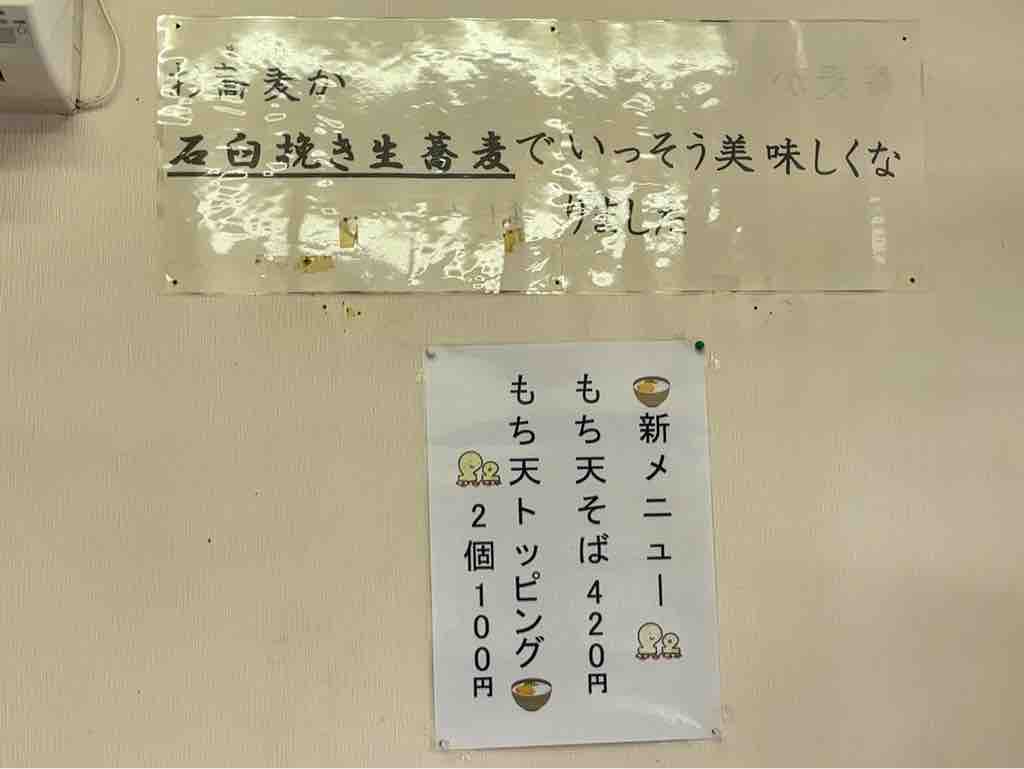 お蕎麦が
石臼挽き生蕎麦でいっそう美味しくな
りました
新メニュー
もち天そば420円
もち天トッピング
2個100円